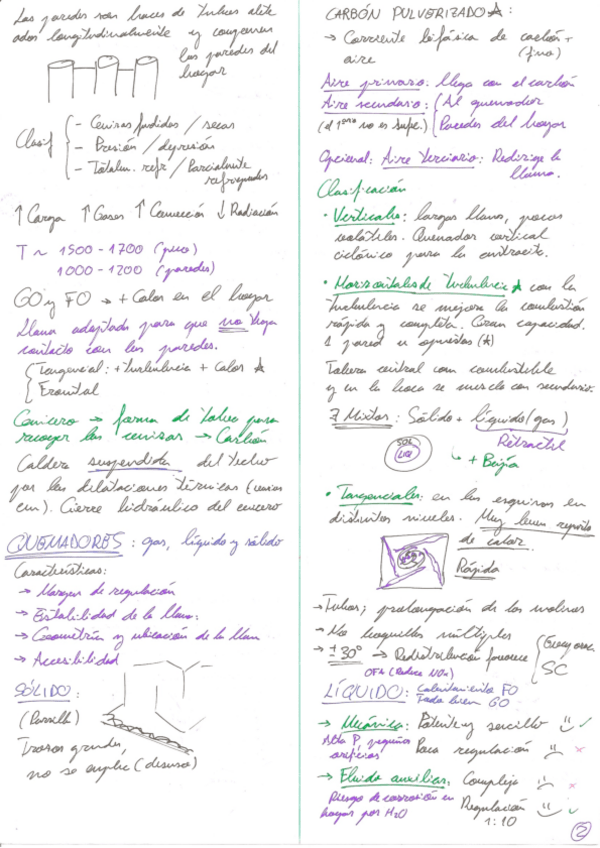 Las paredes son haces de tubos alete
ados longitudinalmente y componen
las paredes del
hogar
Clasif
- Cenizas fundidas / secas
- Presión / depresión
- Totalm. refr / Parcialmente
refrigeradas
↑ Carga ↑ Gases ↑ Convección ↓ Radiación
T ~ 1500 - 1700 (pico)
1000 - 1200 (paredes)
GO y FO → + Calor en el hogar
Llama adaptada para que no haya
contacto con las paredes.
Tangencial: + turbulencia + calor ★
Frontal
Cenicero → forma de tolva para
recoger las cenizas → Carbón
Caldera suspendida del techo
por las dilataciones térmicas (varios
cm). Cierre hidráulico del cenicero
QUEMADORES: gas, líquido y sólido
Características:
→ Margen de regulación
→ Estabilidad de la llama
→ Geometría y ubicación de la llama
→ Accesibilidad
SÓLIDO:
(Parrilla)
Trozos grandes,
no se emplea (desuso)
CARBÓN PULVERIZADO ★:
→ Corriente bifásica de carbón +
aire (fino)
Aire primario: llega con el carbón
Aire secundario: Al quemador
(el 1ario no es sufic.) Paredes del hogar
Opcional: Aire terciario: Redirige la
llama.
Clasificación
• Verticales: largas llamas, pocos
volátiles. Quemador vertical
ciclónico para la antracita.
• Horizontales de turbulencia ★ con la
turbulencia se mejora la combustión
rápida y completa. Gran capacidad.
1 pared u opuestos (★)
Tobera central con combustible
y en la boca se mezcla con secundario.
∃ Mixtos: Sólido + líquido (gas)
SOL
LIQ
Retráctil
↳ + Bujía
• Tangenciales: en las esquinas en
distintos niveles. Muy buen reparto
de calor.
Rápida
→ Tubos; prolongación de los molinos
→ No boquillas múltiples
→ ±30° → Redistribución favorece
SC
OFA (Reduce NOx)
LÍQUIDO: Calentamiento FO
Todo bien GO
→ Mecánica: Potente y sencillo ☺ ✓
Alta P, pequeños
orificios
Poca regulación ☹ ×
→ Fluido auxiliar: Complejo ☹ ×
Riesgo de corrosión en
hogar por H2O
Regulación ☺ ✓
1:10
2